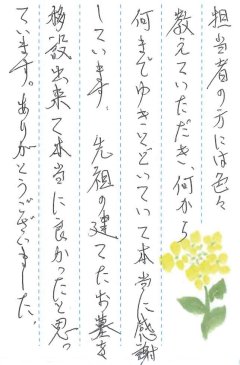 担当者の方には色々
教えていただき、何から
何までゆきとどいていて本当に感謝
しています。先祖の建てたお墓を
移設出来て本当に良かったと思っ
ています。ありがとうございました。